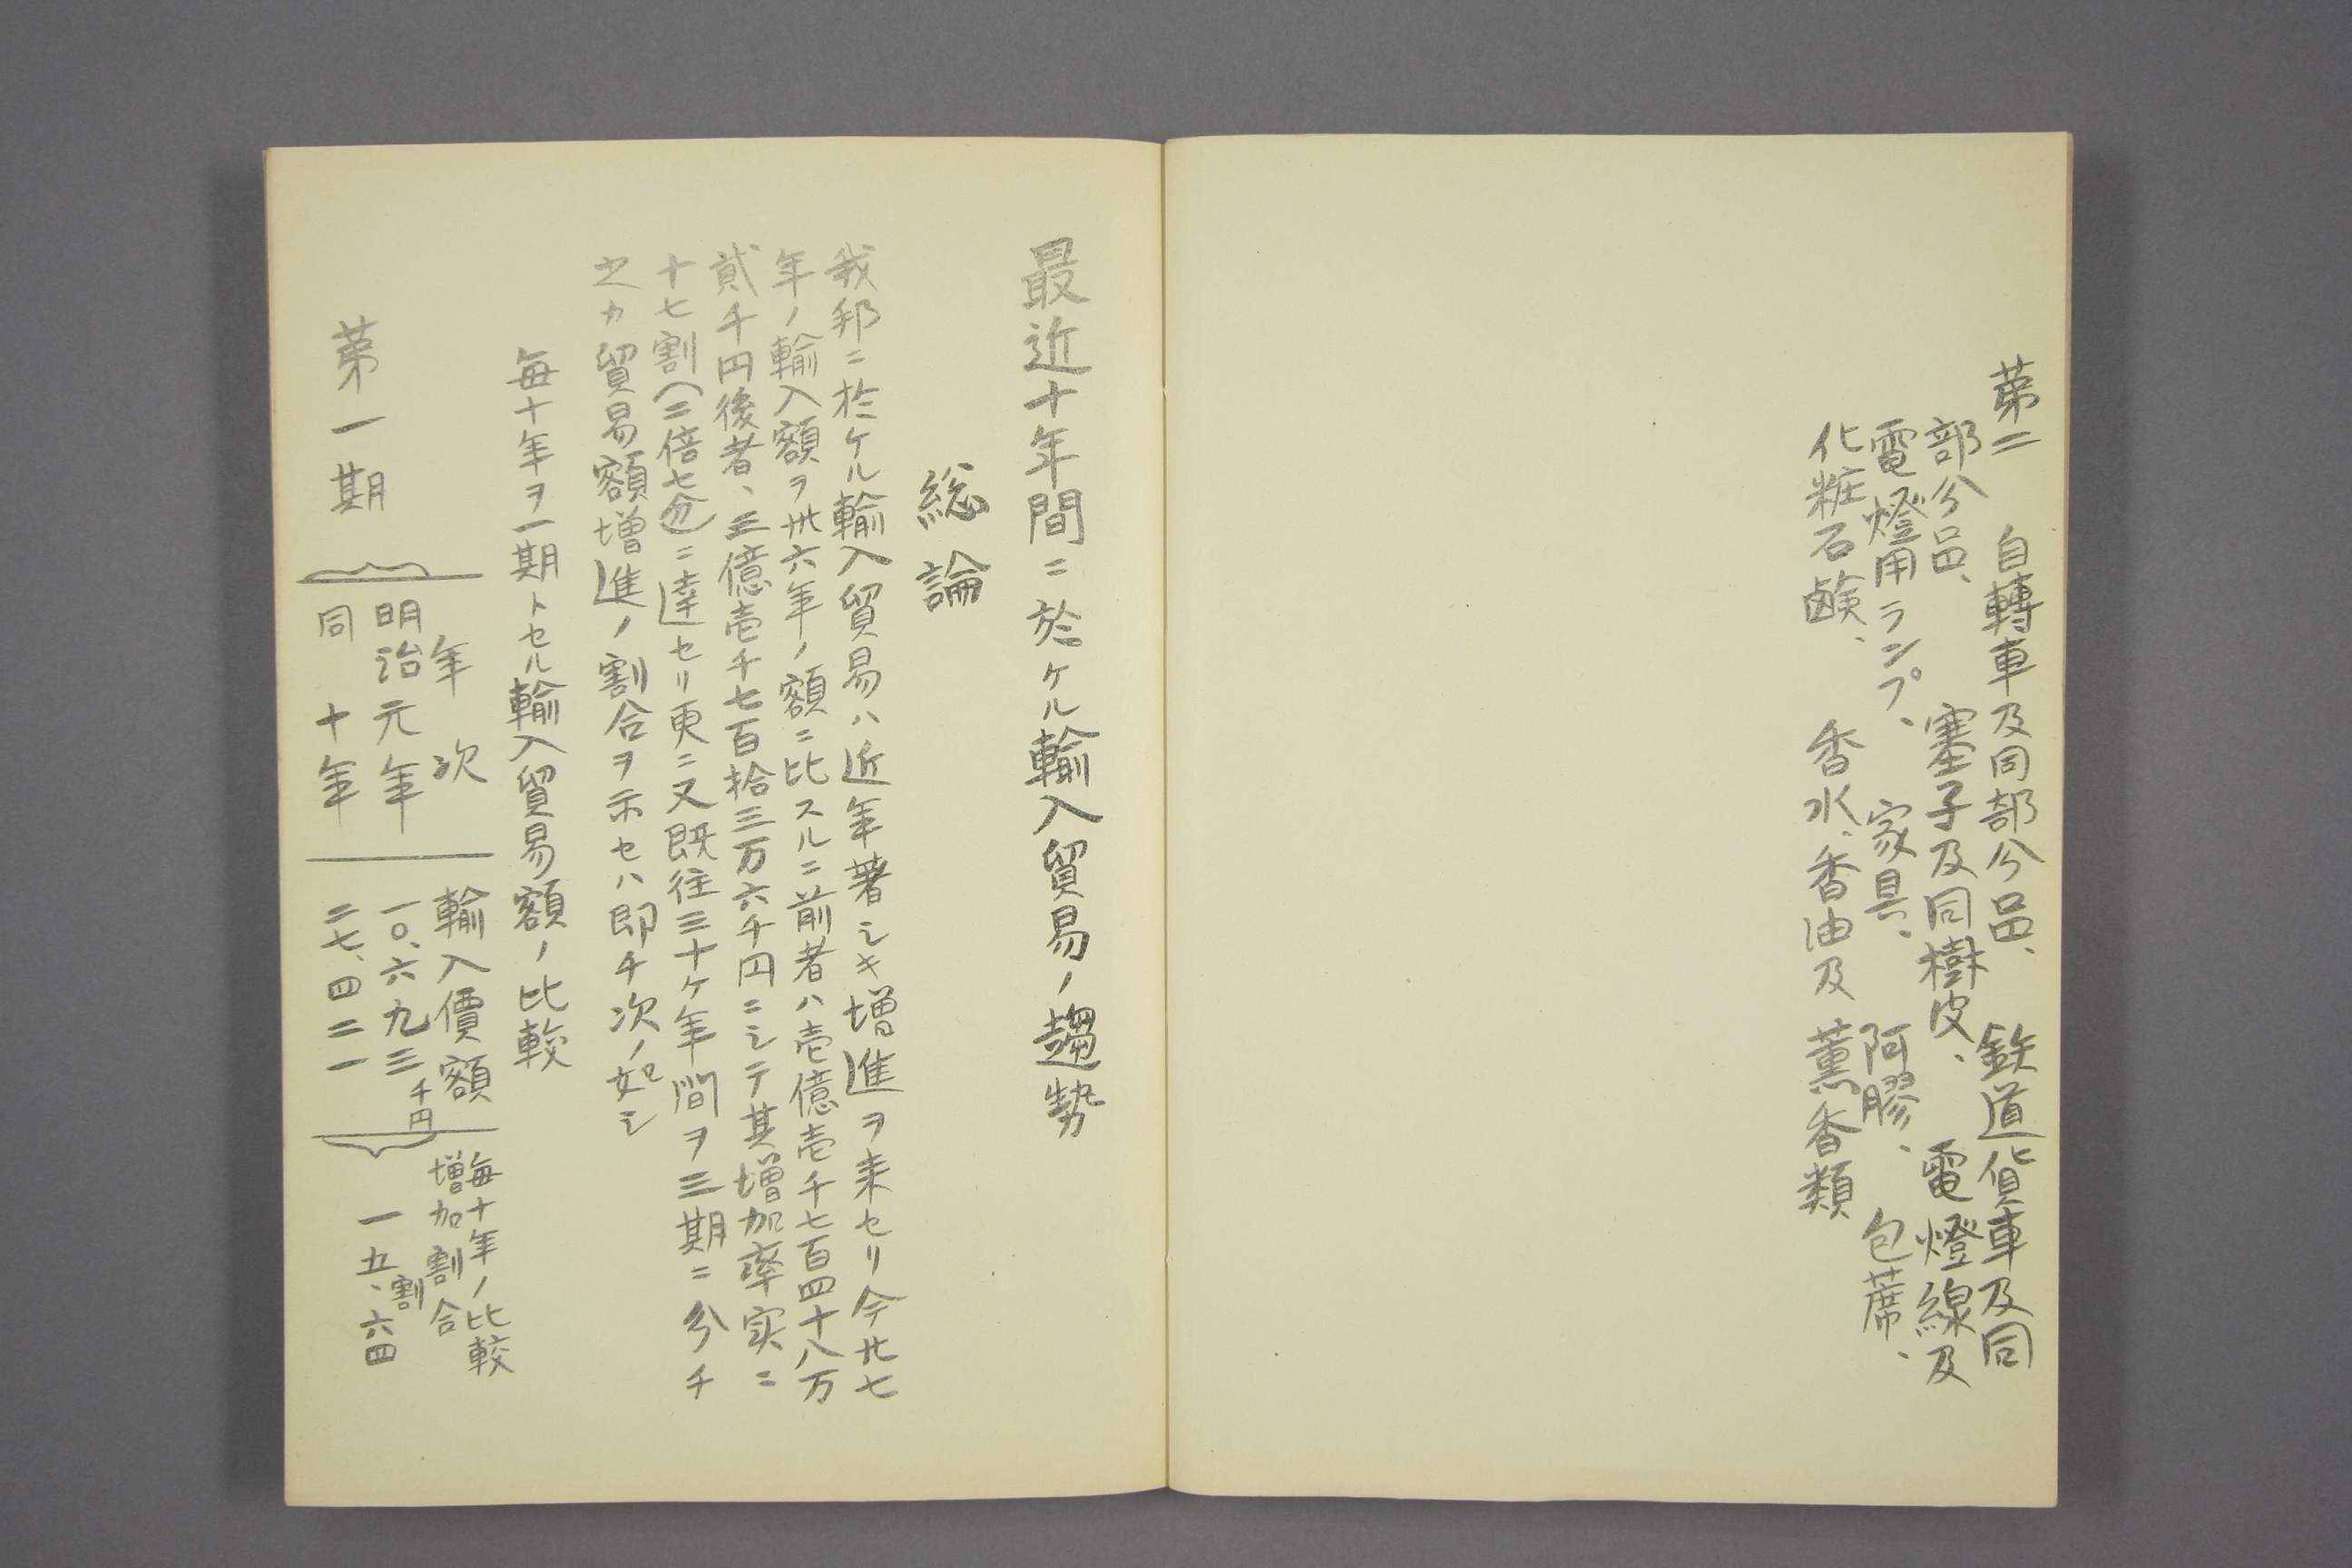 第二　自轉車及同部分品、　鉄道貨車及同
部分品、　塞子及同樹皮、　電燈線及
電燈用ランプ、　家具、　阿膠、　包蓆、
化粧石鹸、　香水、香油及　薫香類
最近十年間ニ於ケル輸入貿易ノ趨勢
総論
我邦ニ於ケル輸入貿易ハ近年著シキ増進ヲ来セリ今廿七
年ノ輸入額ヲ卅六年ノ額ニ比スルニ前者ハ壱億壱千七百四十八万
貳千円後者、三億壱千七百拾三万六千円ニシテ其増加率実ニ
十七割(二倍七分)ニ達セリ更ニ又既往三十ケ年間ヲ三期ニ分チ
之カ貿易額増進ノ割合ヲ示セハ即チ次ノ如シ
毎十年ヲ一期トセル輸入貿易額ノ比較
年次　輸入價額　毎十年ノ比較
増加割合
第一期　明治元年　一〇、六九三千円
同　十年　二七、四二一　一五、六四割